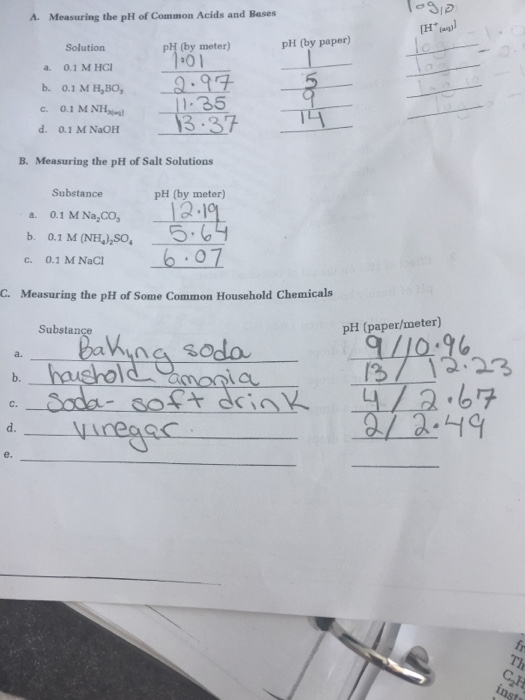 log10
A. Measuring the pH of Common Acids and Bases
[H+(aq)]
Solution pH (by meter) pH (by paper)
a. 0.1 M HCl 1.01 1
b. 0.1 M H3BO3 2.97 5
c. 0.1 M NH3(aq) 11.35 9
d. 0.1 M NaOH 13.37 14
B. Measuring the pH of Salt Solutions
Substance pH (by meter)
a. 0.1 M Na2CO3 12.19
b. 0.1 M (NH4)2SO4 5.64
c. 0.1 M NaCl 6.07
C. Measuring the pH of Some Common Household Chemicals
Substance pH (paper/meter)
a. Bakyng soda 9/10.96
b. haushold amonia 13/12.23
c. Soda- soft drink 4/2.67
d. vinegar 2/2.49
e.
fr
Th
C2H
inst